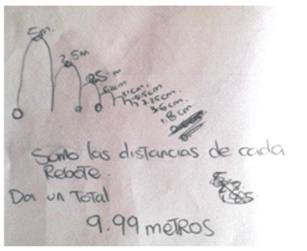 5m.
2,5m
31cm.
15.5cm.
7.75cm.
3.6cm
1.8cm
Sumo las distancias de cada
Rebote.
Da un Total
9.99 metros